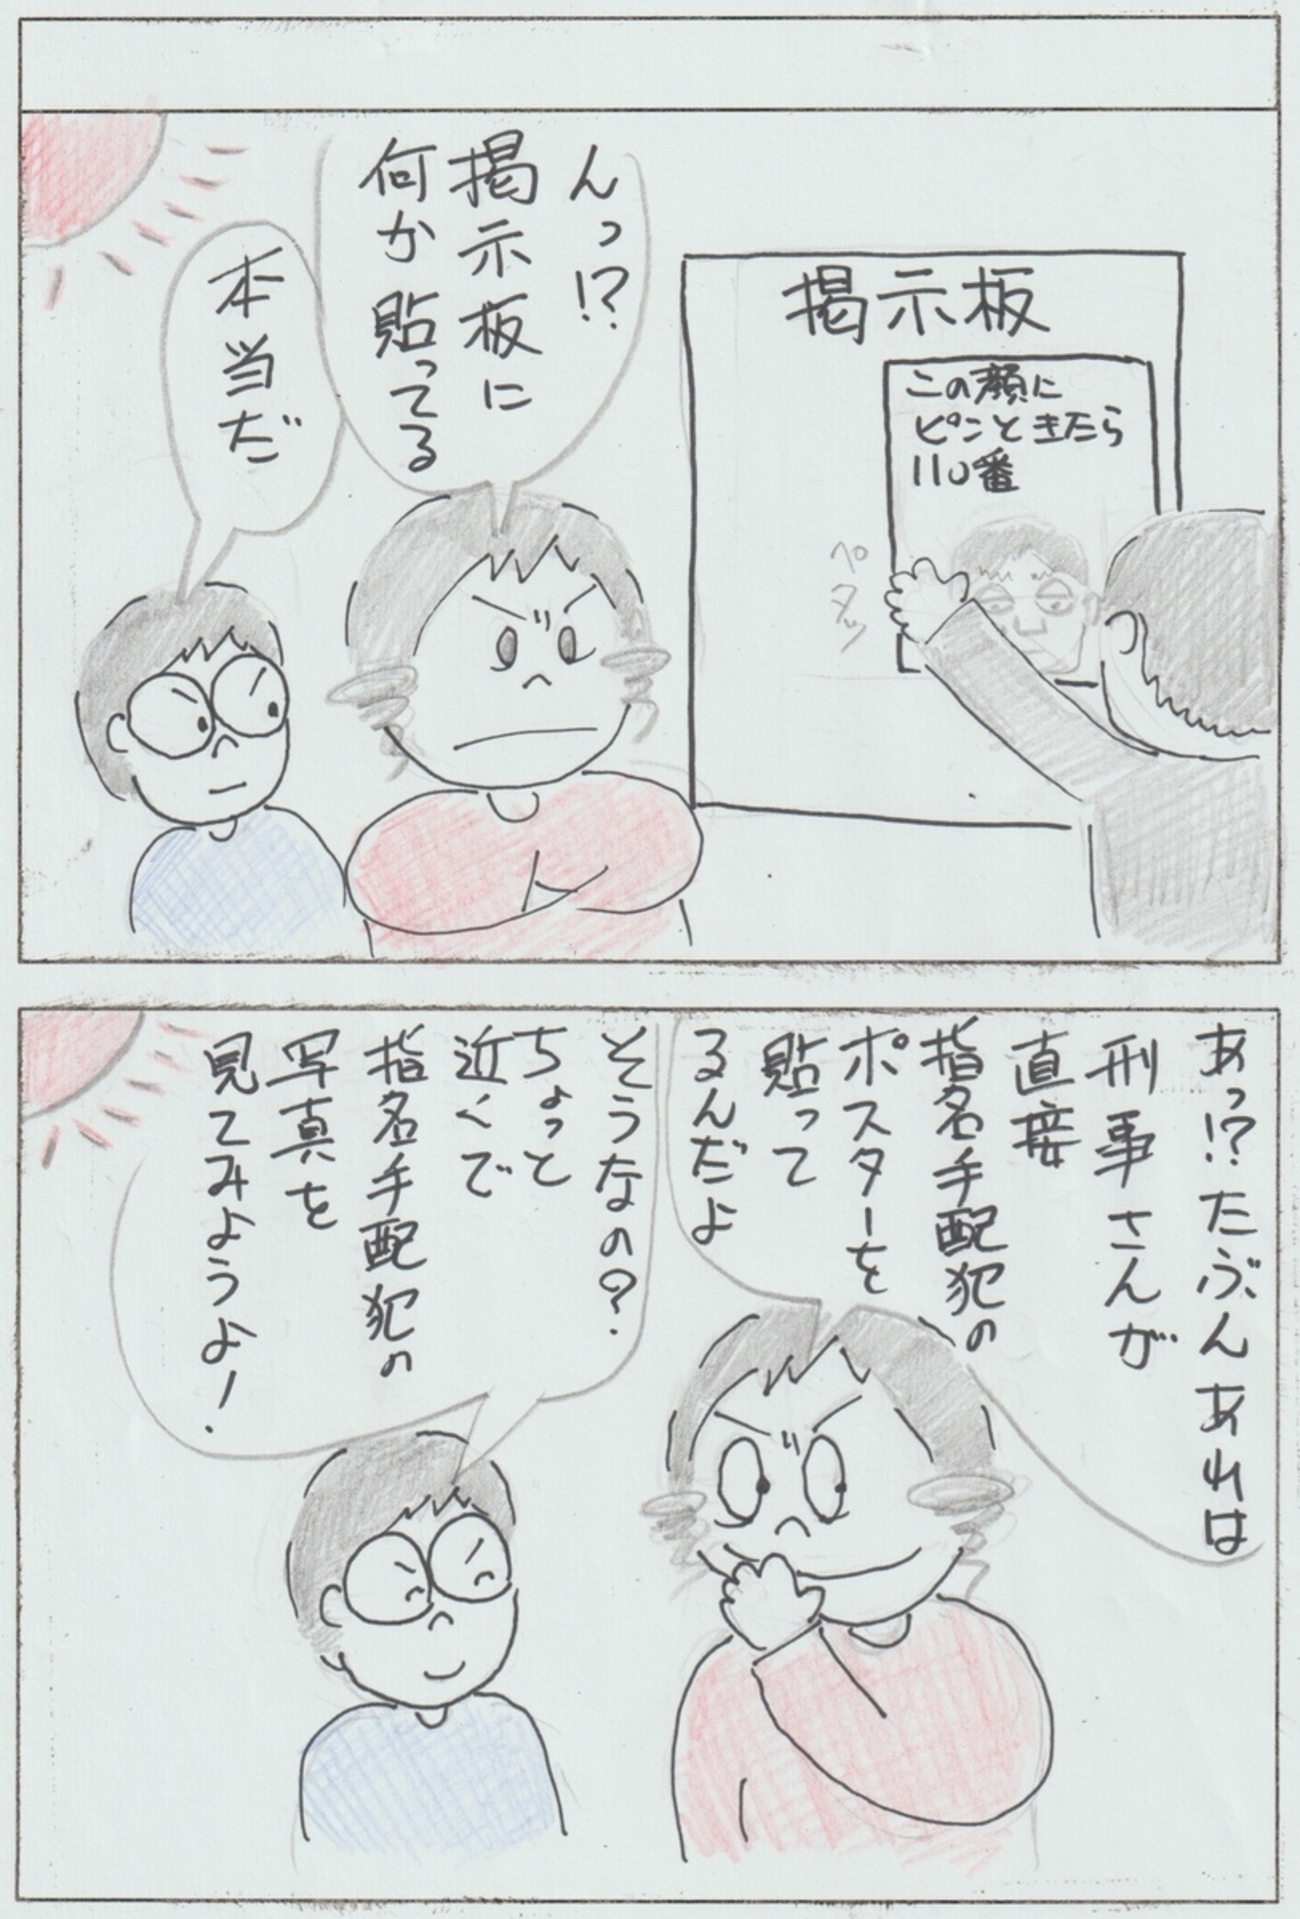 んっ!?
掲示板に
何か貼ってる
本当だ
掲示板
この顔に
ピンときたら
110番
ペタッ
あっ!?たぶんあれは
刑事さんが
直接
指名手配犯の
ポスターを
貼って
るんだよ
そうなの?
ちょっと
近くで
指名手配犯の
写真を
見てみようよ!